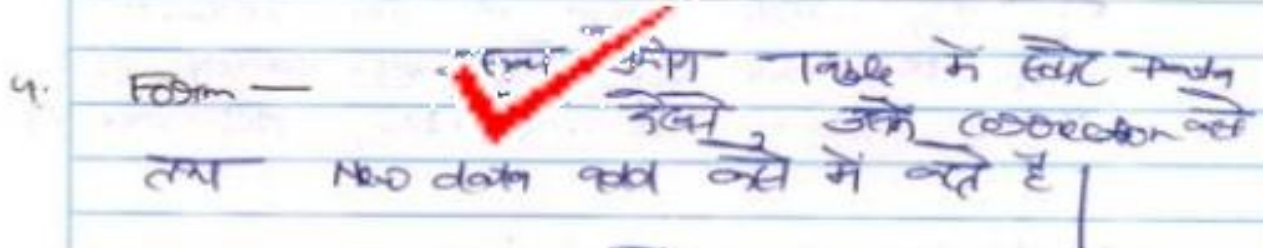 4. Form — इसका उपयोग Table में स्टोर data
देखने, उनके correction करने
तथा New data add करने में करते हैं |